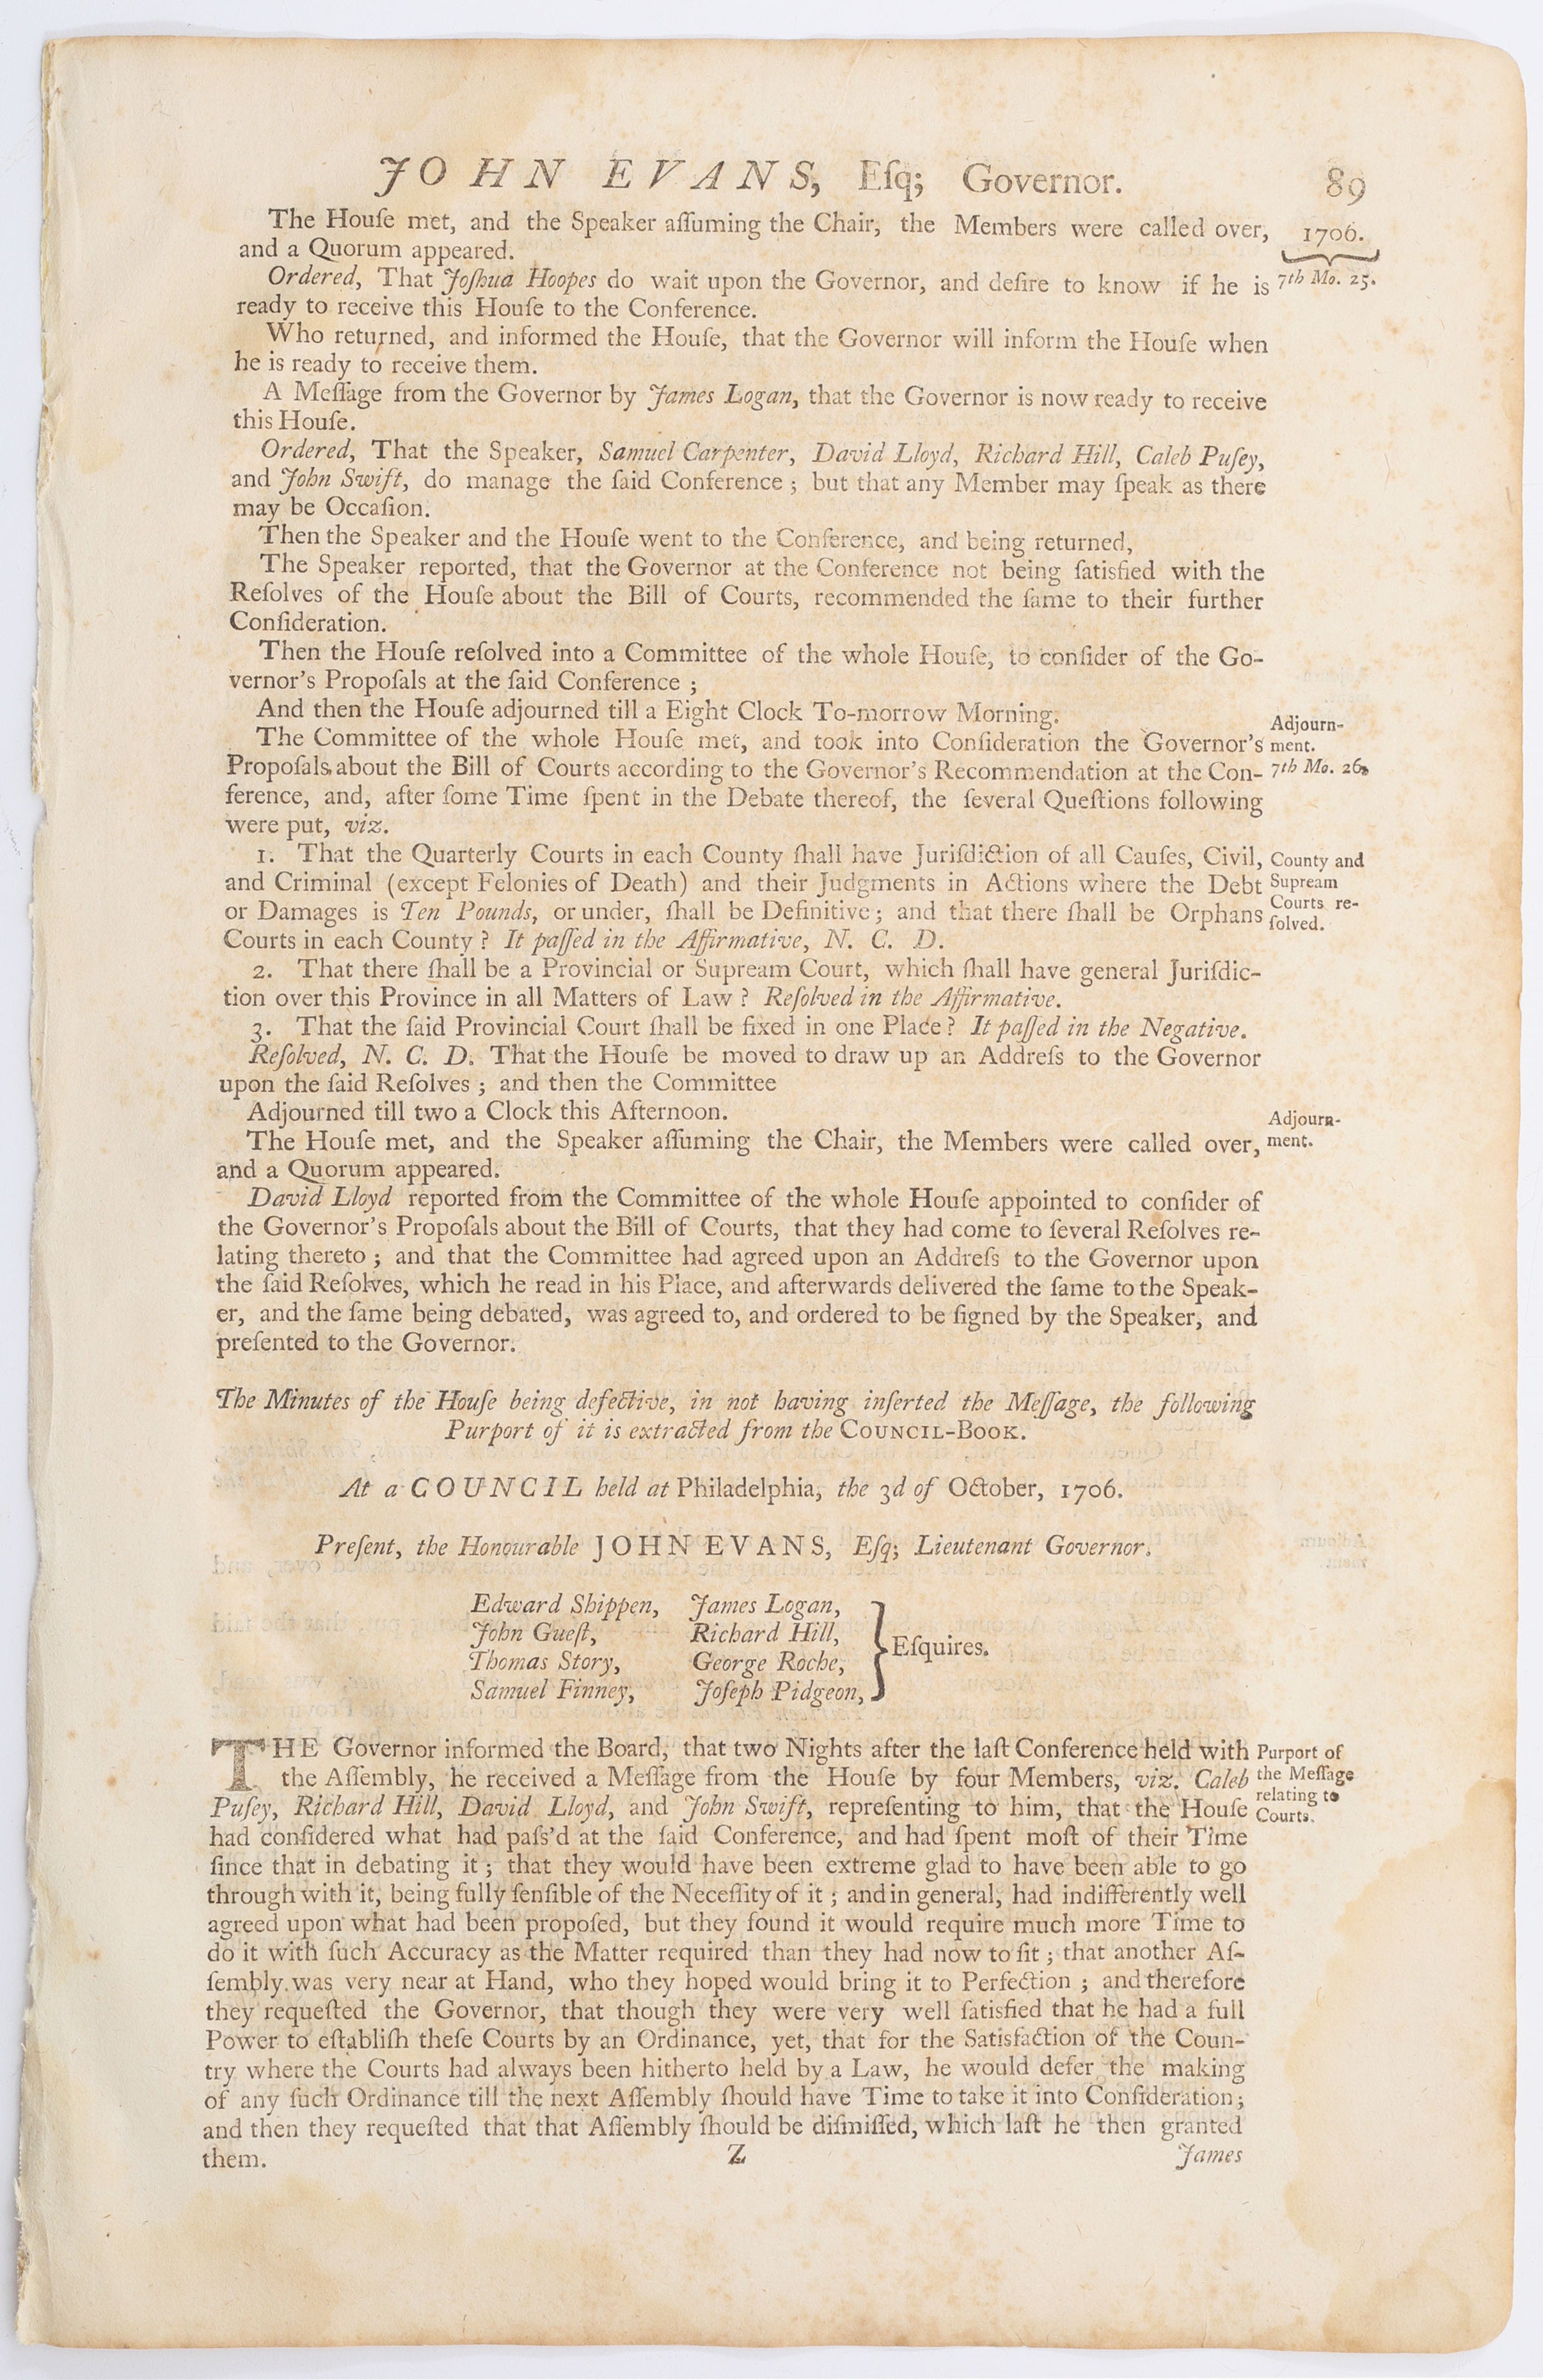 JOHN EVANS, Eſq; Governor. 89
The Houſe met, and the Speaker aſſuming the Chair, the Members were called over, 1706.
and a Quorum appeared.
Ordered, That Joſhua Hoopes do wait upon the Governor, and deſire to know if he is 7th Mo. 25.
ready to receive this Houſe to the Conference.
Who returned, and informed the Houſe, that the Governor will inform the Houſe when
he is ready to receive them.
A Meſſage from the Governor by James Logan, that the Governor is now ready to receive
this Houſe.
Ordered, That the Speaker, Samuel Carpenter, David Lloyd, Richard Hill, Caleb Puſey,
and John Swift, do manage the ſaid Conference; but that any Member may ſpeak as there
may be Occaſion.
Then the Speaker and the Houſe went to the Conference, and being returned,
The Speaker reported, that the Governor at the Conference not being ſatisfied with the
Reſolves of the Houſe about the Bill of Courts, recommended the ſame to their further
Conſideration.
Then the Houſe reſolved into a Committee of the whole Houſe, to conſider of the Go-
vernor's Propoſals at the ſaid Conference;
And then the Houſe adjourned till a Eight Clock To-morrow Morning.
Adjourn-
ment.
The Committee of the whole Houſe met, and took into Conſideration the Governor's
Propoſals about the Bill of Courts according to the Governor's Recommendation at the Con- 7th Mo. 26.
ference, and, after ſome Time ſpent in the Debate thereof, the ſeveral Queſtions following
were put, viz.
1. That the Quarterly Courts in each County ſhall have Juriſdiction of all Cauſes, Civil,
and Criminal (except Felonies of Death) and their Judgments in Actions where the Debt
or Damages is Ten Pounds, or under, ſhall be Definitive; and that there ſhall be Orphans
Courts in each County? It paſſed in the Affirmative, N. C. D.
County and
Supream
Courts re-
ſolved.
2. That there ſhall be a Provincial or Supream Court, which ſhall have general Juriſdic-
tion over this Province in all Matters of Law? Reſolved in the Affirmative.
3. That the ſaid Provincial Court ſhall be fixed in one Place? It paſſed in the Negative.
Reſolved, N. C. D. That the Houſe be moved to draw up an Addreſs to the Governor
upon the ſaid Reſolves; and then the Committee
Adjourned till two a Clock this Afternoon.
Adjourn-
ment.
The Houſe met, and the Speaker aſſuming the Chair, the Members were called over,
and a Quorum appeared.
David Lloyd reported from the Committee of the whole Houſe appointed to conſider of
the Governor's Propoſals about the Bill of Courts, that they had come to ſeveral Reſolves re-
lating thereto; and that the Committee had agreed upon an Addreſs to the Governor upon
the ſaid Reſolves, which he read in his Place, and afterwards delivered the ſame to the Speak-
er, and the ſame being debated, was agreed to, and ordered to be ſigned by the Speaker, and
preſented to the Governor.
The Minutes of the Houſe being defective, in not having inſerted the Meſſage, the following
Purport of it is extracted from the COUNCIL-BOOK.
At a COUNCIL held at Philadelphia, the 3d of October, 1706.
Preſent, the Honourable JOHN EVANS, Eſq; Lieutenant Governor.
Edward Shippen, James Logan,
John Gueſt, Richard Hill,
Thomas Story, George Roche,
Samuel Finney, Joſeph Pidgeon,
Eſquires.
THE Governor informed the Board, that two Nights after the laſt Conference held with
the Aſſembly, he received a Meſſage from the Houſe by four Members, viz. Caleb
Puſey, Richard Hill, David Lloyd, and John Swift, repreſenting to him, that the Houſe
Purport of
the Meſſage
relating to
Courts.
had conſidered what had paſs'd at the ſaid Conference, and had ſpent moſt of their Time
ſince that in debating it; that they would have been extreme glad to have been able to go
through with it, being fully ſenſible of the Neceſſity of it; and in general, had indifferently well
agreed upon what had been propoſed, but they found it would require much more Time to
do it with ſuch Accuracy as the Matter required than they had now to ſit; that another Aſ-
ſembly was very near at Hand, who they hoped would bring it to Perfection; and therefore
they requeſted the Governor, that though they were very well ſatisfied that he had a full
Power to eſtabliſh theſe Courts by an Ordinance, yet, that for the Satisfaction of the Coun-
try where the Courts had always been hitherto held by a Law, he would defer the making
of any ſuch Ordinance till the next Aſſembly ſhould have Time to take it into Conſideration;
and then they requeſted that that Aſſembly ſhould be diſmiſſed, which laſt he then granted
them. Z James